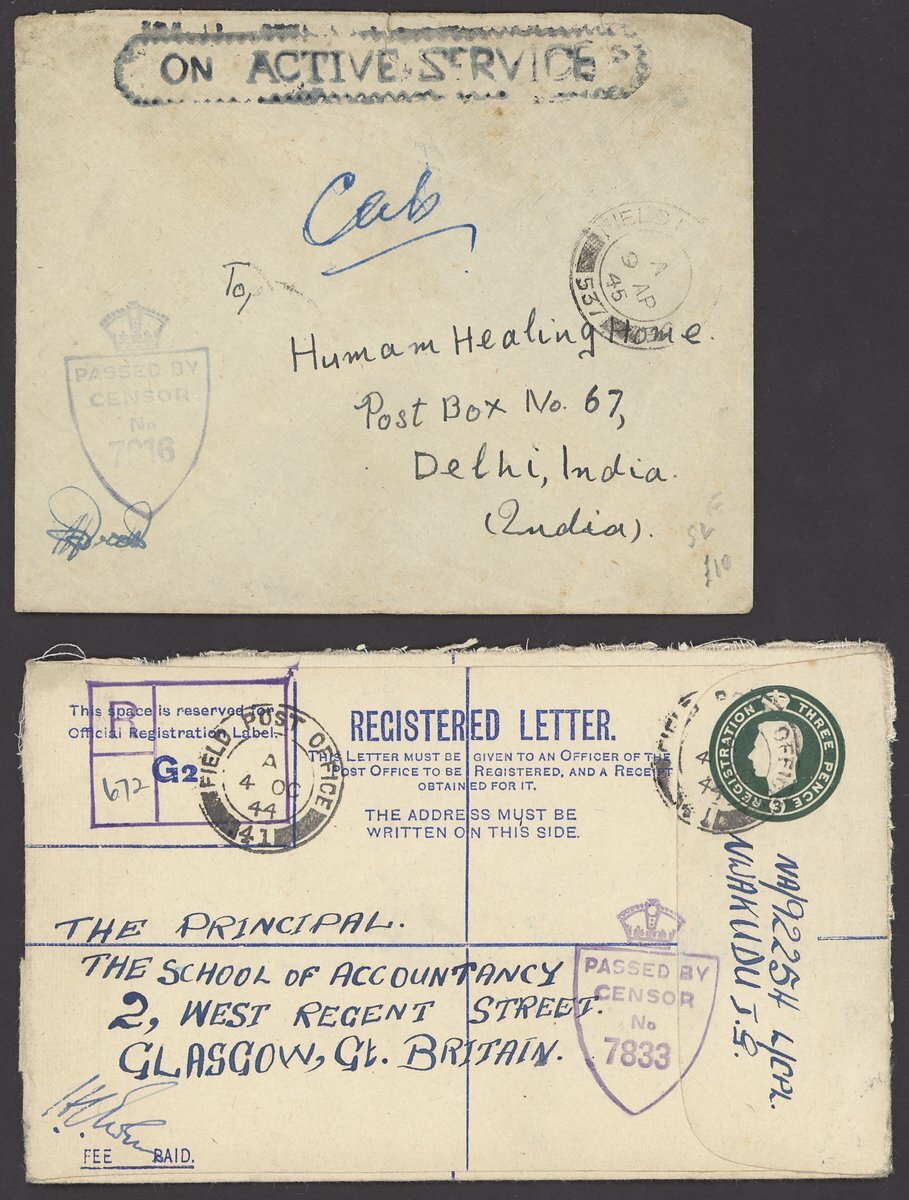 ON ACTIVE SERVICE
Cab
FIELD P
A
9 AP
45
537
To,
Humam Healing Home.
Post Box No. 67,
Delhi, India.
(India).
PASSED BY
CENSOR
No
7216
F
£10
This space is reserved for
Official Registration Label.
R
G2
672
FIELD POST OFFICE
A
4 OC
44
41
REGISTERED LETTER.
THIS LETTER MUST BE GIVEN TO AN OFFICER OF THE
POST OFFICE TO BE REGISTERED, AND A RECEIPT
OBTAINED FOR IT.
THE ADDRESS MUST BE
WRITTEN ON THIS SIDE.
REGISTRATION THREE PENCE (3)
FIELD PO OFFIC
4
44
NA/92254 L/CPL.
NWAKUDU J.S.
THE PRINCIPAL.
THE SCHOOL OF ACCOUNTANCY
2, WEST REGENT STREET.
GLASGOW, Gt. BRITAIN.
PASSED BY
CENSOR
No
7833
FEE PAID.